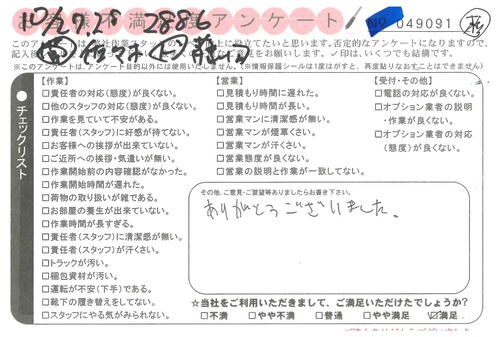 お客様不満足度アンケート
10/27,28 2886
No 049091
このアンケートは、弊社作業スタッフの
役立てたいと思います。否定的なアンケートになりますので、
記入後
印は、いくつでも結構です。
※このアンケートは、アンケート目的以外には使用いたしません。(※情報保護シールは1度はがすと、再度貼りなおすことはできません)
チェックリスト
【作業】
□責任者の対応(態度)が良くない。
□他のスタッフの対応(態度)が良くない。
□作業を見ていて不安がある。
□責任者(スタッフ)に好感が持てない。
□お客様への挨拶が出来ていない。
□ご近所への挨拶・気遣いが無い。
□作業開始前の内容確認がなかった。
□作業開始時間が遅れた。
□荷物の取り扱いが雑である。
□お部屋の養生が出来ていない。
□作業時間が長すぎる。
□責任者(スタッフ)に清潔感が無い。
□責任者(スタッフ)が汗くさい。
□トラックが汚い。
□梱包資材が汚い。
□運転が不安(下手)である。
□靴下の履き替えをしてない。
□スタッフにやる気がみられない。
【営業】
□見積もり時間に遅れた。
□見積もり時間が長い。
□営業マンに清潔感が無い。
□営業マンが煙草くさい。
□営業マンが汗くさい。
□営業態度が良くない。
□営業の説明と作業が一致してない。
【受付・その他】
□電話の対応が良くない。
□オプション業者の説明
・作業が良くない。
□オプション業者の対応
(態度)が良くない。
その他、ご意見・ご要望等ありましたらお書き下さい。
ありがとうございました。
☆当社をご利用いただきまして、ご満足いただけたでしょうか?
□不満 □やや不満 □普通 □やや満足 ☑満足